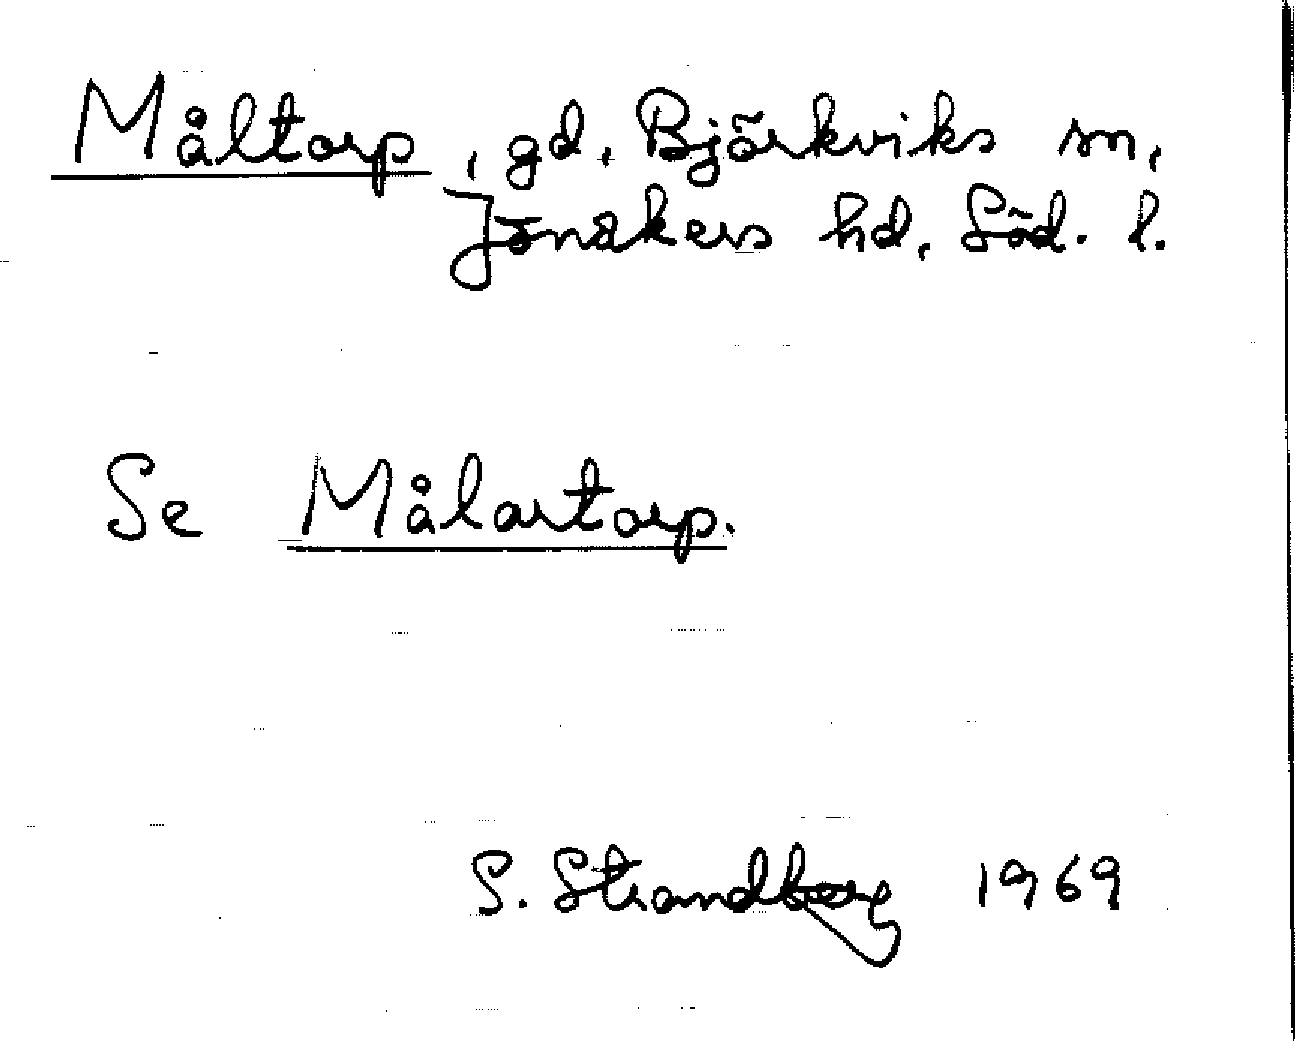 Måltorp, gd, Björkviks sn,
Jönåkers hd, Söd. l.
Se Målartorp.
S. Strandberg 1969